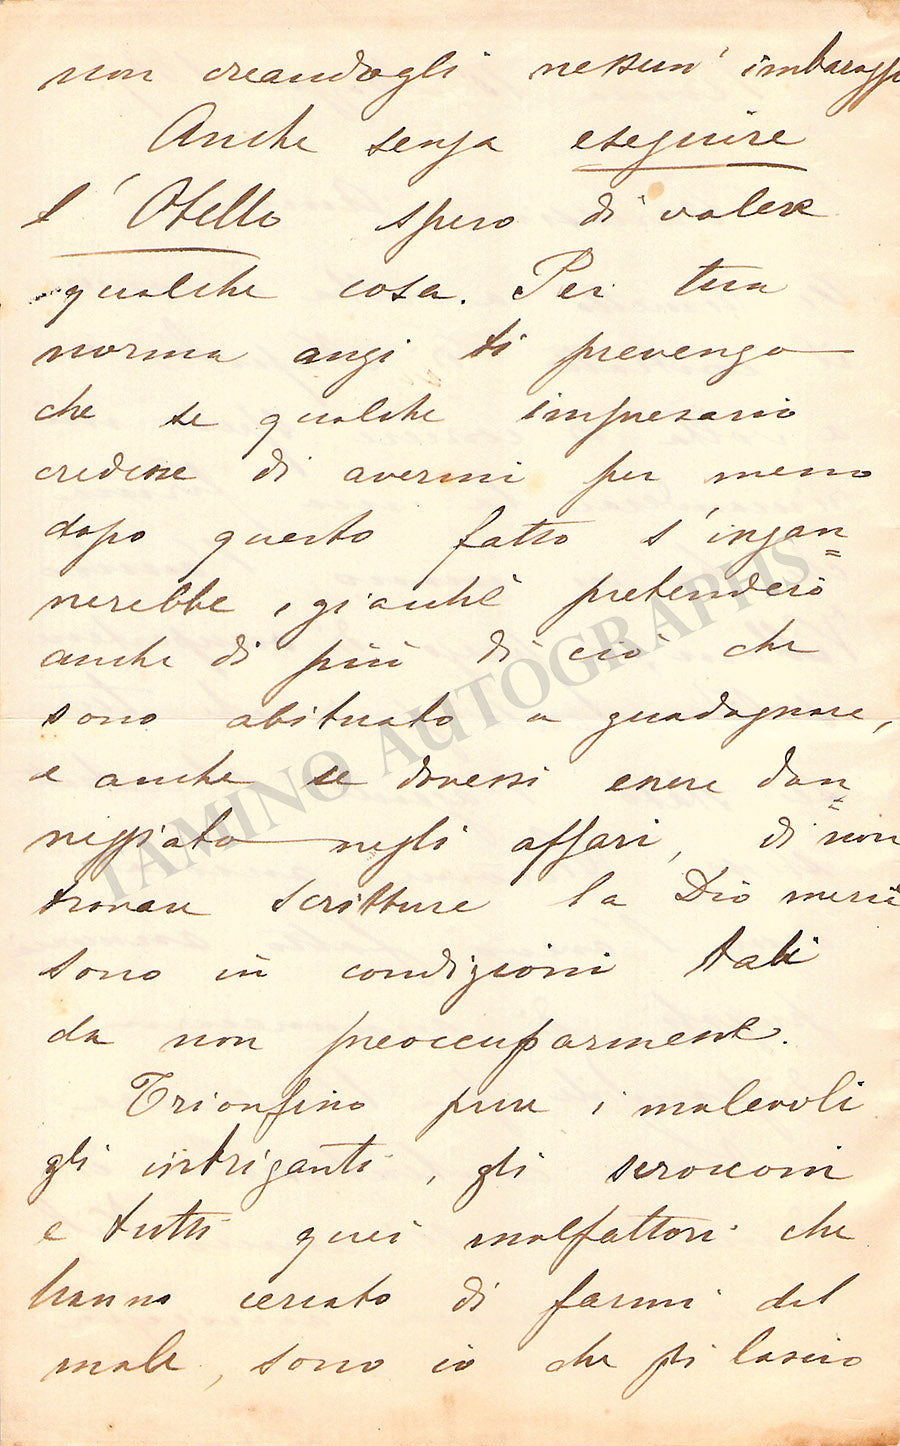 non creandogli nessun' imbarazzo
Anche senza eseguire
l'Otello spero di valere
qualche cosa. Per tua
norma anzi ti prevengo
che se qualche impresario
credesse di avermi per meno
dopo questo fatto s'ingan=
nerebbe, giacchè pretenderò
anche di più di ciò che
sono abituato a guadagnare,
e anche se dovessi essere dan=
neggiato negli affari, di non
trovare scritture la Dio mercè
sono in condizioni tali
da non preoccuparmene.
Trionfino pure i malevoli
gli intriganti, gli scrocconi
e tutti quei malfattori che
hanno cercato di farmi del
male, sono io che li lascio
TAMINO AUTOGRAPHS